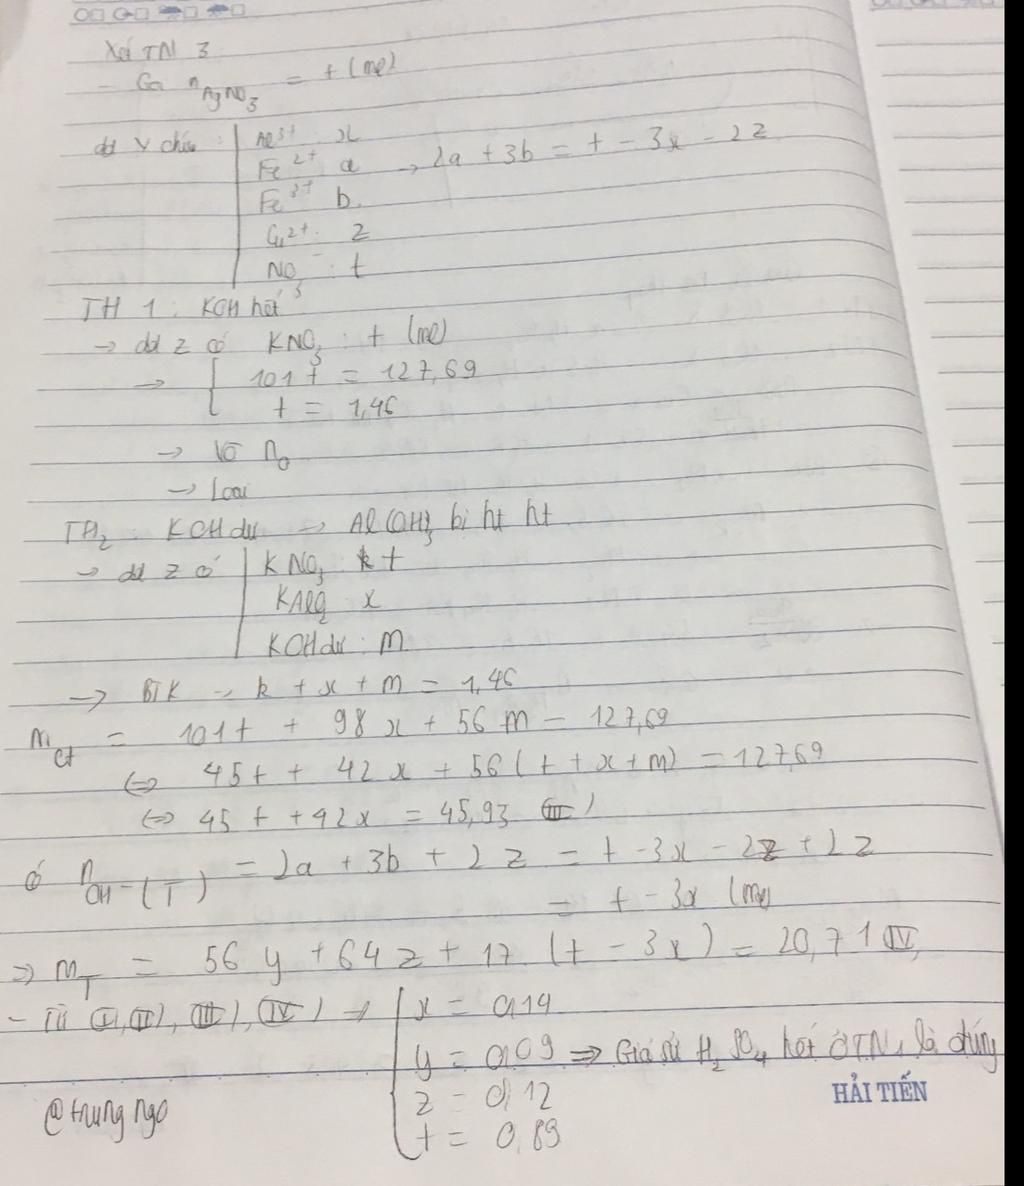 Xét TN 3
- Gọi n AgNO3 = t (mol)
dd Y chứa : Al3+ x
Fe2+ a → 2a + 3b = t - 3x - 2z
Fe3+ b
Cu2+ : z
NO3- : t
TH 1 : KOH hết
→ dd Z có KNO3 : t (mol)
→ { 101t = 127,69
t = 1,46
→ Vô no
→ Loại
TH2 : KOH dư → Al(OH)3 bị ht ht
→ dd Z có KNO3 : t
KAlO2 x
KOH dư : m
→ BTK → t + x + m = 1,46
mct = 101t + 98x + 56m = 127,69
⇔ 45t + 42x + 56(t + x + m) = 127,69
⇔ 45t + 42x = 45,93 (III)
Có nOH-(T) = 2a + 3b + 2z = t - 3x - 2z + 2z
= t - 3x (mol)
⇒ mT = 56y + 64z + 17 (t - 3x) = 20,71 (IV)
- Từ (I), (II), (III), (IV) → { x = 0,14
y = 0,09 ⇒ Giả sử H2SO4 hết ở TN1 là đúng
z = 0,12
t = 0,89
HẢI TIẾN
@trung ngo